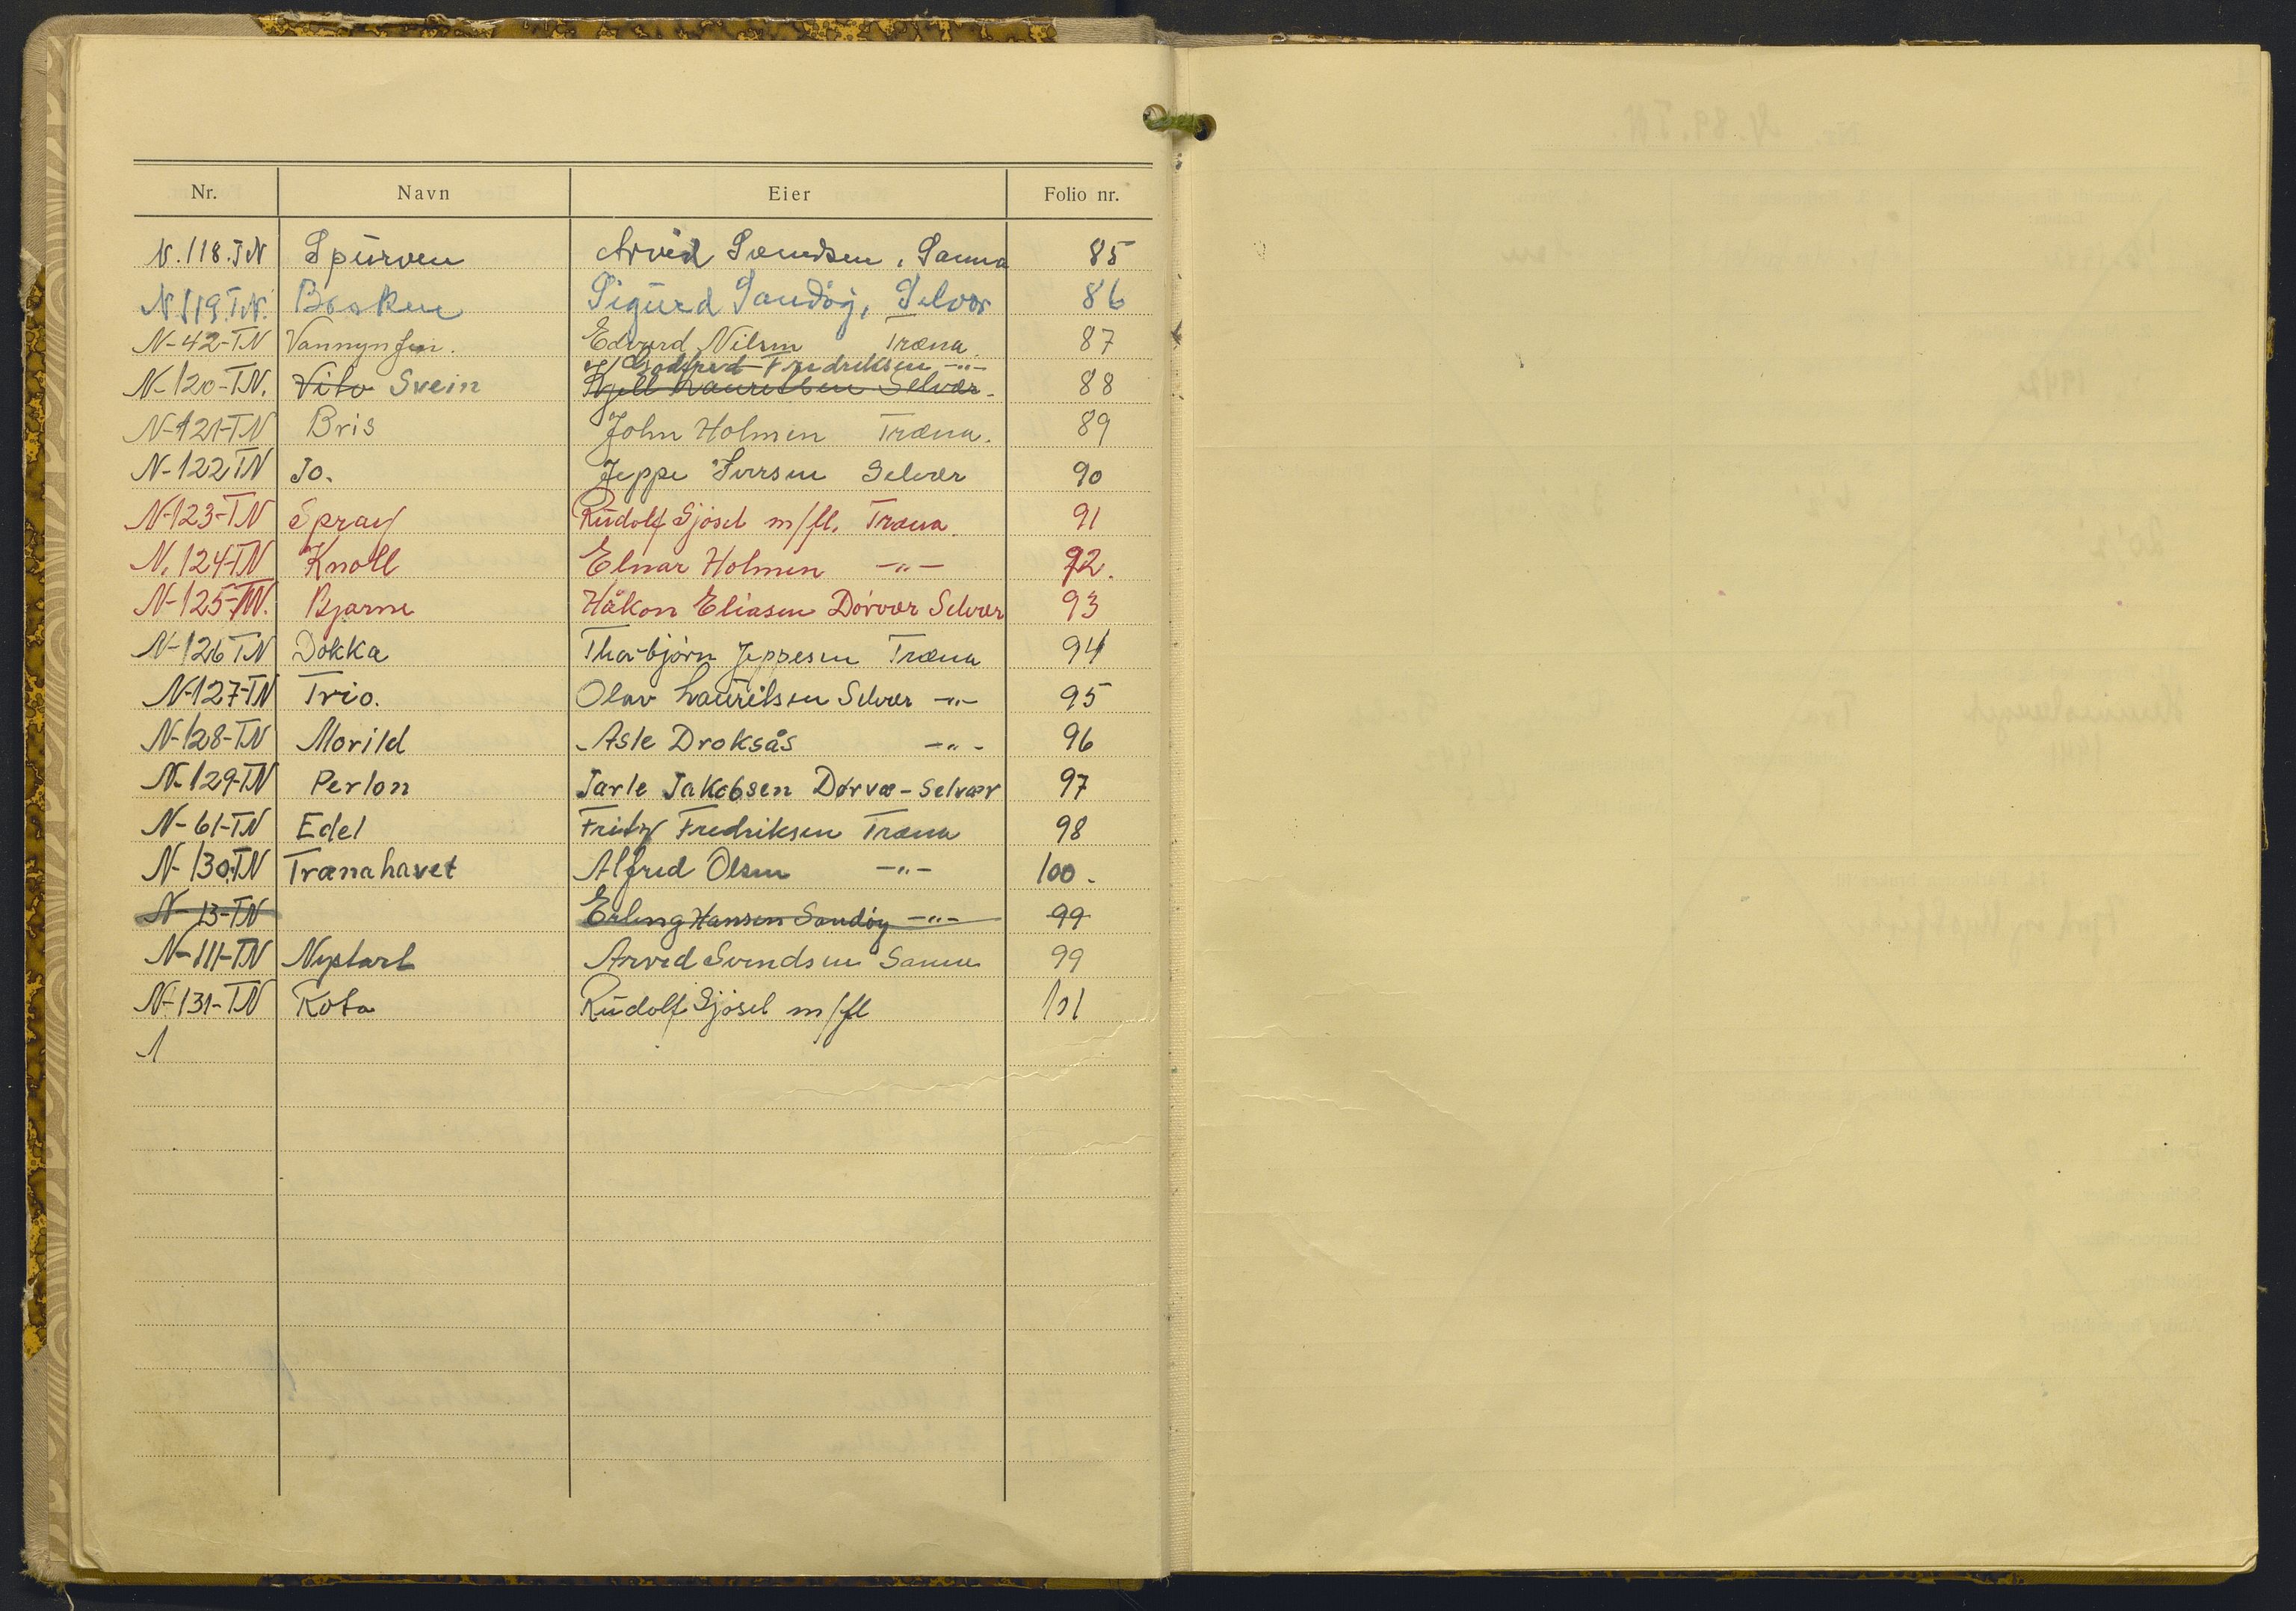 Nr. Navn Eier Folio nr.
N.118.TN Spurven Arvid Svendsen, Sanna 85
N 119.TN. Basken Sigurd Sandøy, Selvær 86
N-42-TN Edvard Nilsen Træna. 87
Godtfred Fredriksen -"-
N-120-TN. Vito Svein Kjell Lauritsen Selvær. 88
N-121-TN Bris John Holmen Træna. 89
N-122 TN Jo. Jeppe Iversen Selvær 90
N-123-TN Spray Rudolf Sjøsel m/fl. Træna. 91
N.124-TN Knoll Elnar Holmen -"- 92.
N-125-TN. Bjarne Håkon Eliasen Dørvær Selvær 93
N-126 TN Dokka Thorbjørn Jeppesen Træna 94
N-127-TN Trio. Olav Lauritsen Selvær -"- 95
N-128-TN Morild Asle Droksås -"- 96
N-129-TN Perlon Jarle Jakobsen Dørvæ-Selvær 97
N-61-TN Edel Fritz Fredriksen Træna 98
N-130.TN Trænahavet Alfred Olsen -"- 100.
N-13-TN Erling Hansen Sandøy -"- 99
N-111-TN Nystart Arvid Svendsen Sanna 99
N-131-TN Kota Rudolf Sjøsel m/fl 101
1